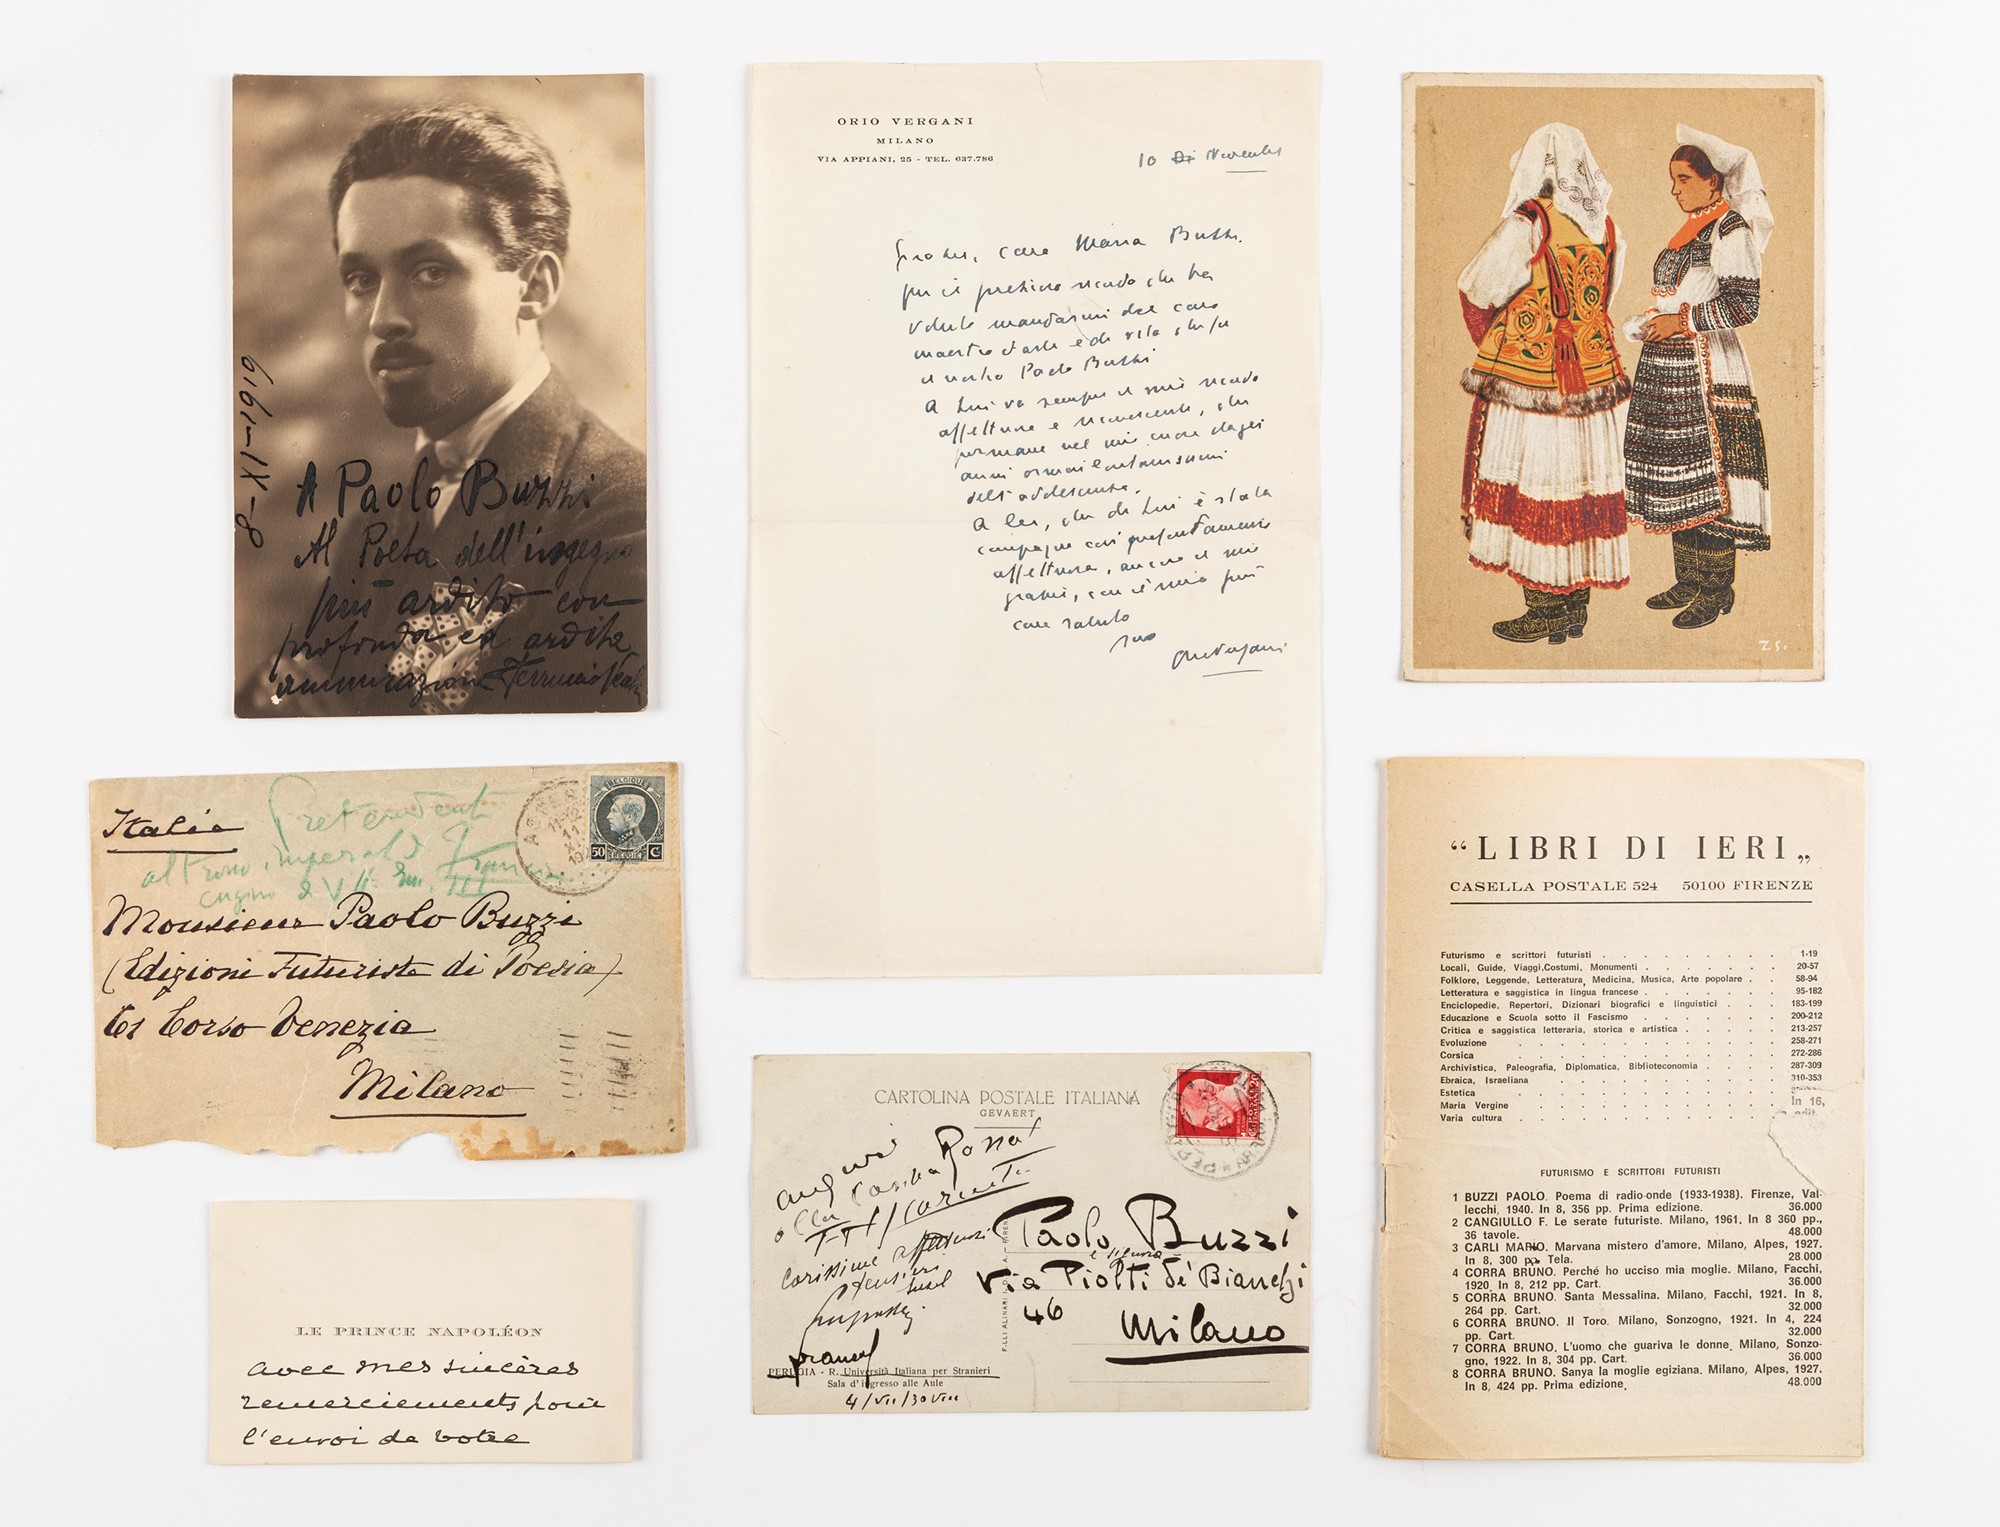 8-XI-1919
A Paolo Buzzi
Al Poeta dell'ingegno
più ardito con
profonda ed ardita
ammirazione Ferruccio
ORIO VERGANI
MILANO
VIA APPIANI, 25 - TEL. 637.786
10 Di Novembre
cara Maria Buzzi.
per il prezioso ricordo che ha
voluto mandarmi del caro
maestro d'arte e di vita che fu
il nostro Paolo Buzzi
A Lui va sempre il mio ricordo
affettuoso e riconoscente, che
permane nel mio cuore dagli
anni ormai lontanissimi
dell'adolescenza.
A lei, che di Lui è stata
compagna così profondamente
affettuosa, ancora il mio
grazie, con il mio più
caro saluto
suo
Orio Vergani
Z.S.
Italie
Pretendente
al trono imperiale di Francia
cugino di V. Em. III
BELGIQUE
50 C
BELGIE
Monsieur Paolo Buzzi
(Edizioni Futuriste di Poesia)
61 Corso Venezia
Milano
LE PRINCE NAPOLÉON
avec mes sincères
remerciements pour
l'envoi de votre
CARTOLINA POSTALE ITALIANA
GEVAERT
auguri
alla Casina Rossa
carissime affettuosi
pensieri
Paolo Buzzi
e signora
Via Piolti de' Bianchi
46
Milano
PERUGIA - R. Università Italiana per Stranieri
Sala d'ingresso alle Aule
4/VII/30 VIII
"LIBRI DI IERI„
CASELLA POSTALE 524 50100 FIRENZE
Futurismo e scrittori futuristi . . . . . . . . . 1-19
Locali, Guide, Viaggi,Costumi, Monumenti . . . . . . 20-57
Folklore, Leggende, Letteratura, Medicina, Musica, Arte popolare . . 58-94
Letteratura e saggistica in lingua francese . . . . . . 95-182
Enciclopedie, Repertori, Dizionari biografici e linguistici . . . 183-199
Educazione e Scuola sotto il Fascismo . . . . . . 200-212
Critica e saggistica letteraria, storica e artistica . . . . . 213-257
Evoluzione . . . . . . . . . . . . 258-271
Corsica . . . . . . . . . . . . 272-286
Archivistica, Paleografia, Diplomatica, Biblioteconomia . . . . 287-309
Ebraica, Israeliana . . . . . . . . . . 310-353
Estetica . . . . . . . . . . . .
Maria Vergine . . . . . . . . . . . In 16,
Varia cultura . . . . . . . . . . . edit.
FUTURISMO E SCRITTORI FUTURISTI
1 BUZZI PAOLO. Poema di radio-onde (1933-1938). Firenze, Val-
lecchi, 1940. In 8, 356 pp. Prima edizione. 36.000
2 CANGIULLO F. Le serate futuriste. Milano, 1961. In 8 360 pp.,
36 tavole. 48.000
3 CARLI MARIO. Marvana mistero d'amore. Milano, Alpes, 1927.
In 8, 300 pp. Tela. 28.000
4 CORRA BRUNO. Perché ho ucciso mia moglie. Milano, Facchi,
1920. In 8, 212 pp. Cart. 36.000
5 CORRA BRUNO. Santa Messalina. Milano, Facchi, 1921. In 8,
264 pp. Cart. 32.000
6 CORRA BRUNO. Il Toro. Milano, Sonzogno, 1921. In 4, 224
pp. Cart. 32.000
7 CORRA BRUNO. L'uomo che guariva le donne. Milano, Sonzo-
gno, 1922. In 8, 304 pp. Cart. 36.000
8 CORRA BRUNO. Sanya la moglie egiziana. Milano, Alpes, 1927.
In 8, 424 pp. Prima edizione. 48.000